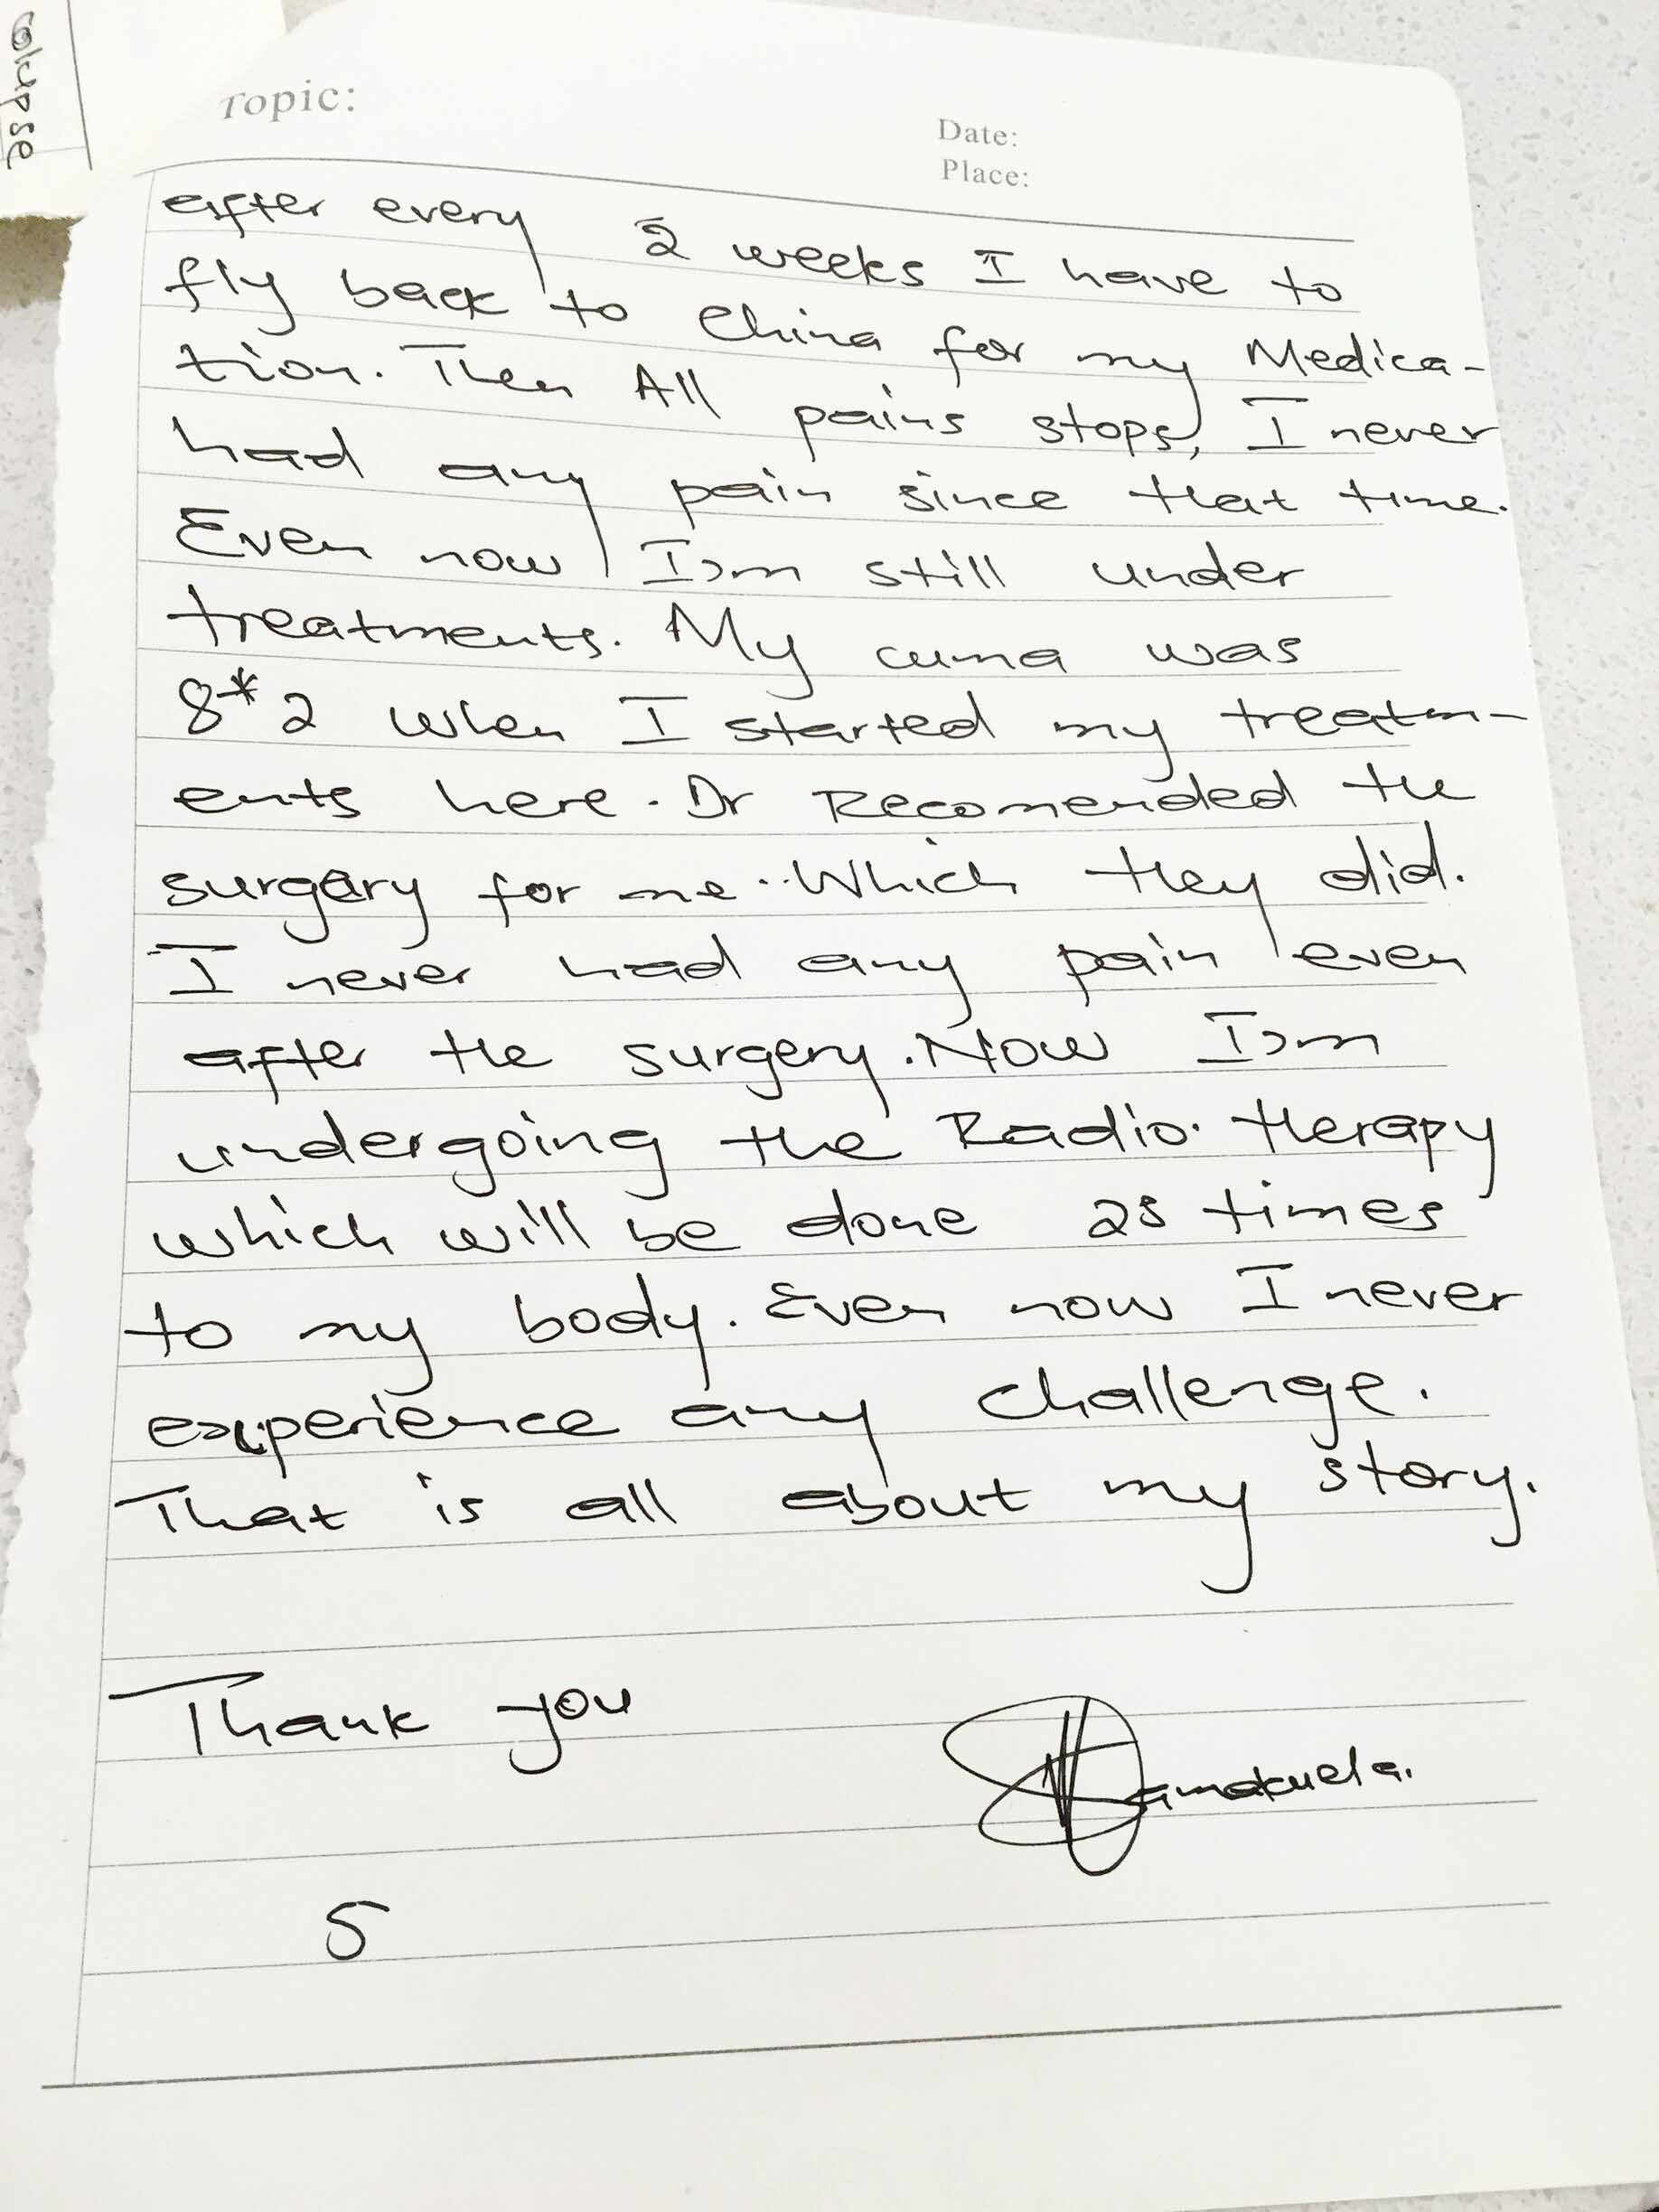 colupse
Topic:
Date:
Place:
after every 2 weeks I have to
fly back to China for my Medica-
tion. Then All pains stops, I never
had any pain since that time.
Even now I'm still under
treatments. My cuma was
8*2 when I started my treatm-
ents here. Dr Recomended the
surgery for me. Which they did.
I never had any pain even
after the surgery. Now I'm
undergoing the Radio. therapy
which will be done times
to my body. Even now I never
experience any challenge.
That is all about my story.
Thank you
5